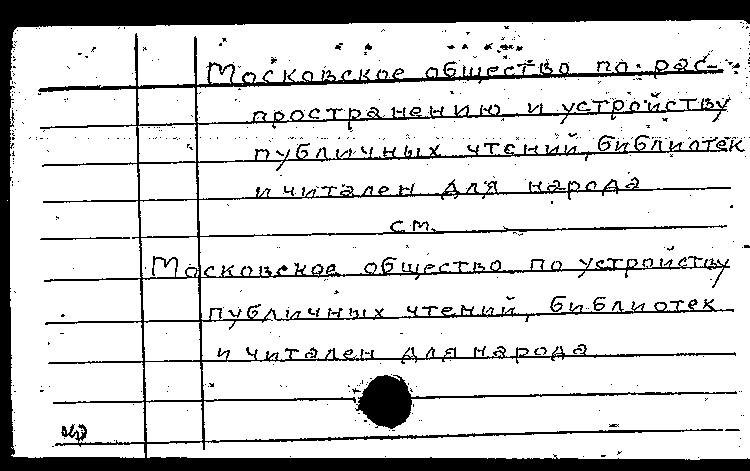 Московское общество по рас-
пространению и устройству
публичных чтений, библиотек
и читален для народа
см.
Московское общество по устройству
публичных чтений, библиотек
и читален для народа